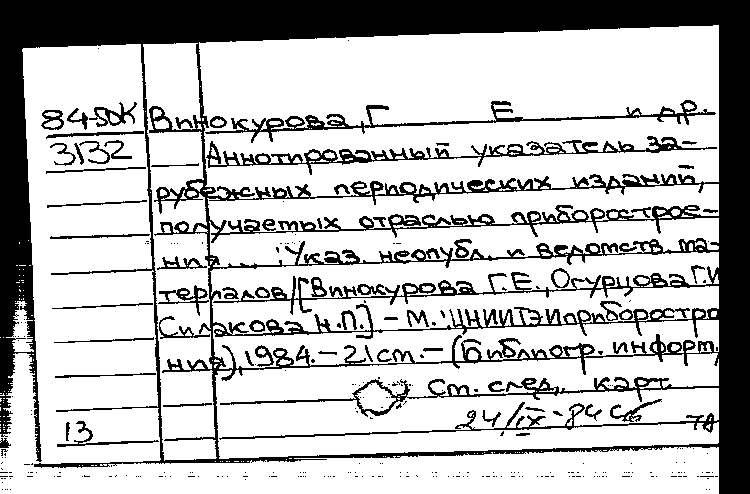 84-50К Винокурова, Г Е и др.
3132 Аннотированный указатель за-
рубежных периодических изданий,
получаемых отраслью приборострое-
ния... : Указ. неопубл. и ведомств. ма-
териалов/[Винокурова Г.Е., Огурцова Г.И
Силакова Н.П.]. - М. : ЦНИИТЭИприборостро
ния), 1984. - 21 ст. - (Библиогр. информ.
Ст. след. карт
24/IX-84
13